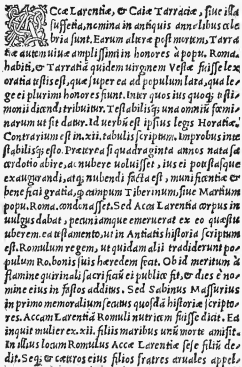 ACcæ Larentiæ, et Caiæ Tarraciæ, siue illa
suffetia, nomina in antiquis annalibus cele
bria sunt. Earum alteræ post mortem, Tarra
tiæ autem uiuæ amplissimi honores à popu. Roma.
habiti, et Tarratiã quidem uirginem Vestæ fuisse lex
oratia testis est, quæ super ea ad populum lata, qua le-
ge ei plurimi honores fiunt. Inter quos ius quoq; testi-
monii dicendi, tribuitur. Testabilisq; una omniũ fœmi
narum ut sit datur. Id uerbũ est ipsius legis Horatiæ.
Contrarium est in .xii. tabulis scriptum. Improbus inte
stabilisq; esto. Prætereà si quadraginta annos nata sa
cerdotio abire, ac nubere uoluisset, ius ei potestasque
exaugurandi, atq; nubendi facta est, munificẽtiæ et
beneficii gratia, quæ campum Tiberinum, siue Martium
popu. Roma. condonasset. Sed Acca Larentia corpus in
uulgus dabat, pecuniamque emeruerat ex eo quæstu
uberem. ea testamento, ut in Antiatis historia scriptum
est. Romulum regem, ut quidam alii tradiderunt po-
pulum Ro. bonis suis hæredem fecit. Ob id meritum à
flamine quirinali sacrificiũ ei publicè fit, et dies è no-
mine eius in fastos additus. Sed Sabinus Massurius
in primo memorialium secutus quosdã historiæ scripto
res. Accam Larentiã Romuli nutricem fuisse dicit. Ea
inquit mulier ex .xii. filiis maribus unũ morte amisit.
In illius locum Romulus Accæ Larentiæ sese filiũ de-
dit. Seq; et cæteros eius filios fratres aruales appel-